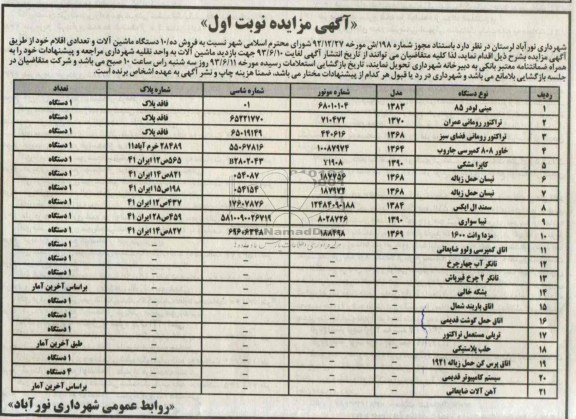 «آگهی مزایده نوبت اول»
شهرداری نورآباد لرستان در نظر دارد باستناد مجوز شماره ۱۹۸/ش مورخه ۹۲/۱۲/۲۷ شورای محترم اسلامی شهر نسبت به فروش ده/۱۰ دستگاه ماشین آلات و تعدادی اقلام خود از طریق
آگهی مزایده بشرح ذیل اقدام نماید. لذا کلیه متقاضیان می توانند از تاریخ انتشار آگهی لغایت ۹۳/۶/۱۰ جهت بازدید ماشین آلات به واحد نقلیه شهرداری مراجعه و پیشنهادات خود را به
همراه ضمانتنامه معتبر بانکی به دبیرخانه شهرداری تحویل نمایند. تاریخ بازگشایی استعلامات رسیده مورخه ۹۳/۶/۱۱ روز سه شنبه راس ساعت ۱۰ صبح می باشد و شرکت متقاضیان در
جلسه بازگشایی بلامانع می باشد و شهرداری در رد یا قبول هر کدام از پیشنهادات مختار می باشد. ضمنا هزینه چاپ و نشر آگهی به عهده اشخاص برنده است.
ردیف نوع دستگاه مدل شماره موتور شماره شاسی شماره پلاک تعداد
۱ مینی لودر ۸۵ ۱۳۸۳ ۶۸۰۱۰۱۰۴ ۰۱ فاقد پلاک ۱ دستگاه
۲ تراکتور رومانی عمران ۱۳۷۰ ۷۱۰۴۷۲ ۶۵۴۲۱۷۷۰ فاقد پلاک ۱ دستگاه
۳ تراکتور رومانی فضای سبز ۱۳۶۸ ۴۴۰۶۱۶ ۶۵۰۱۹۱۴۹ فاقد پلاک ۱ دستگاه
۴ خاور ۸۰۸ کمپرسی جاروب ۱۳۶۴ ۱۰۰۸۷۹۷۴ ۵۵۰۶۷۸۱۶ ۲۸۴۸۹ خرم آباد۱۱ ۱ دستگاه
۵ کاپرا مشکی ۱۳۹۰ ۷۱۹۰۸ ۱۱۲۸۰۲۰۴۳ ۵۶۵ص۱۲ ایران ۴۱ ۱ دستگاه
۶ نیسان حمل زباله ۱۳۶۸ ۱۸۷۷۵۶ ۰۵۴۰۸۷ ۸۲۱ص۱۴ ایران ۴۱ ۱ دستگاه
۷ نیسان حمل زباله ۱۳۶۸ ۱۸۷۹۷۴ ۰۵۴۱۵۴ ۱۹۸ص۱۵ ایران ۴۱ ۱ دستگاه
۸ سمند ال ایکس ۱۳۸۴ ۱۲۴۸۴۰۹۰۱۸۸ ۱۷۶۰۷۸۷۶ ۴۳۷ص۱۲ ایران ۴۱ ۱ دستگاه
۹ تیبا سواری ۱۳۹۰ ۸۰۲۸۷۴۶ ۵۸۱۰۰۹۰۰۲۶۷۱۹ ۴۵۹ص۲۸ ایران ۴۱ ۱ دستگاه
۱۰ مزدا وانت ۱۶۰۰ ۱۳۶۹ ۱۸۸۴۹۸ ۶۹۶۰۶۳۴۸ ۸۲۷ص۱۴ ایران ۴۱ ۱ دستگاه
۱۱ اتاق کمپرسی ولوو ضایعاتی – – – – ۱ دستگاه
۱۲ تانکر آب چهارچرخ – – – – ۱ دستگاه
۱۳ تانکر ۲ چرخ قیرپاش – – – – ۱ دستگاه
۱۴ بشکه خالی – – – – براساس آخرین آمار
۱۵ اتاق باربند شمال – – – – ۱ دستگاه
۱۶ اتاق حمل گوشت قدیمی – – – – ۱ دستگاه
۱۷ تریلی مستعمل تراکتور – – – – ۱ دستگاه
۱۸ حلب پلاستیکی – – – – طبق آخرین آمار
۱۹ اتاق پرس کن حمل زباله ۱۹۲۱ – – – – ۱ دستگاه
۲۰ سیستم کامپیوتر قدیمی – – – – ۴ دستگاه
۲۱ آهن آلات ضایعاتی – – – – براساس آخرین آمار
«روابط عمومی شهرداری نورآباد»